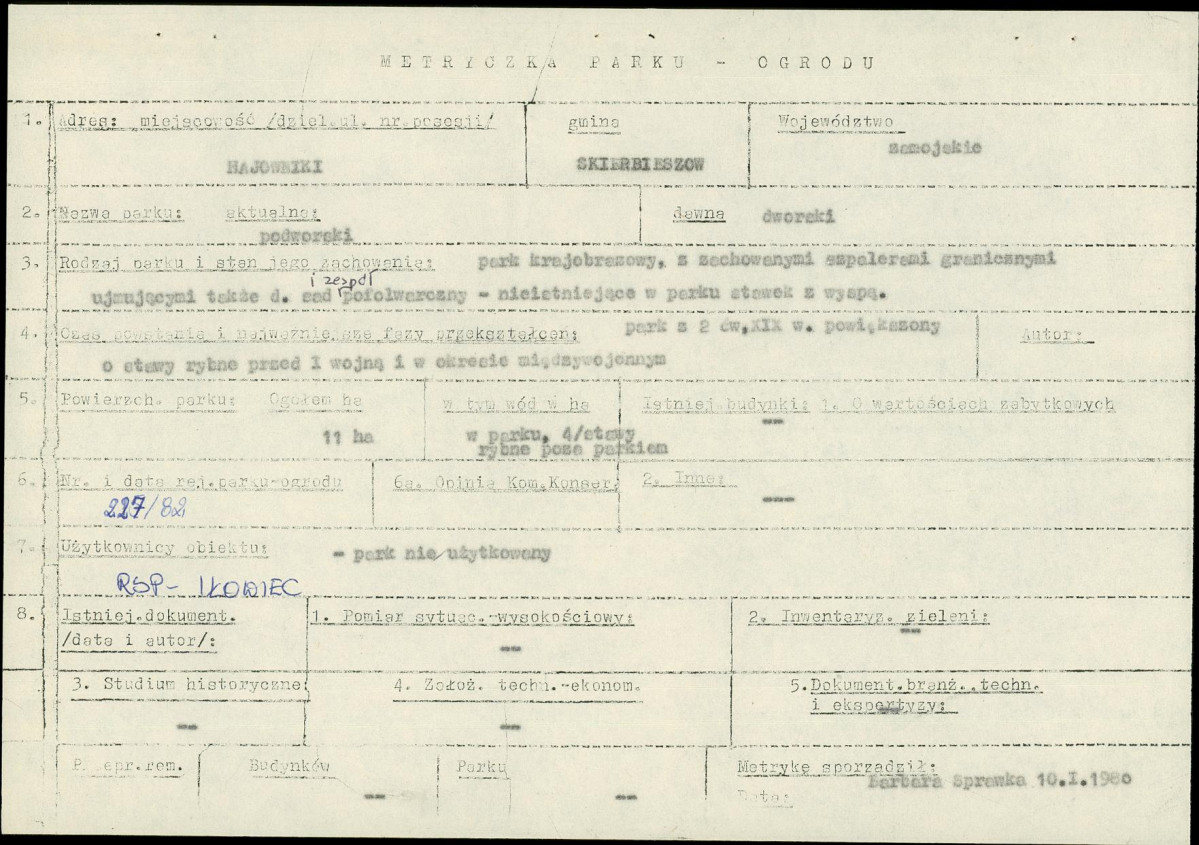 METRYCZKA PARKU - OGRODU
1. Adres: miejscowość /dział.ul. nr.posesji/ gmina Województwo
HAJOWNIKI SKIERBIESZOW zamojskie
2. Nazwa parku: aktualna: dawna dworski
podworski
3. Rodzaj parku i stan jego zachowania: park krajobrazowy, z zachowanymi szpalerami granicznymi
i zespół
ujmującymi także d. sad pofolwarczny - nieistniejące w parku stawek z wyspą.
4. Czas powstania i najważniejsze fazy przekształceń: park z 2 ćw.XIX w. powiększony Autor:
o stawy rybne przed I wojną i w okresie międzywojennym
5. Powierzch. parku: Ogółem ha w tym wód w ha Istniej.budynki: 1. O wartościach zabytkowych
--
11 ha w parku, 4/stawy
rybne poza parkiem
6. Nr. i data rej.parku-ogrodu 6a. Opinia Kom.Konser. 2. Inne:
227/82 ---
7. Użytkownicy obiektu: - park nie użytkowany
RSP - IŁOWIEC
8. Istniej.dokument. 1. Pomiar sytuac.-wysokościowy: 2. Inwentaryz. zieleni:
/data i autor/: -- --
3. Studium historyczne: 4. Założ. techn.-ekonom. 5. Dokument.branż., techn.
i ekspertyzy:
-- -- --
epr.rem. Budynków Parku Metrykę sporządził:
-- -- Barbara Sprawka 10.I.1980
Data: